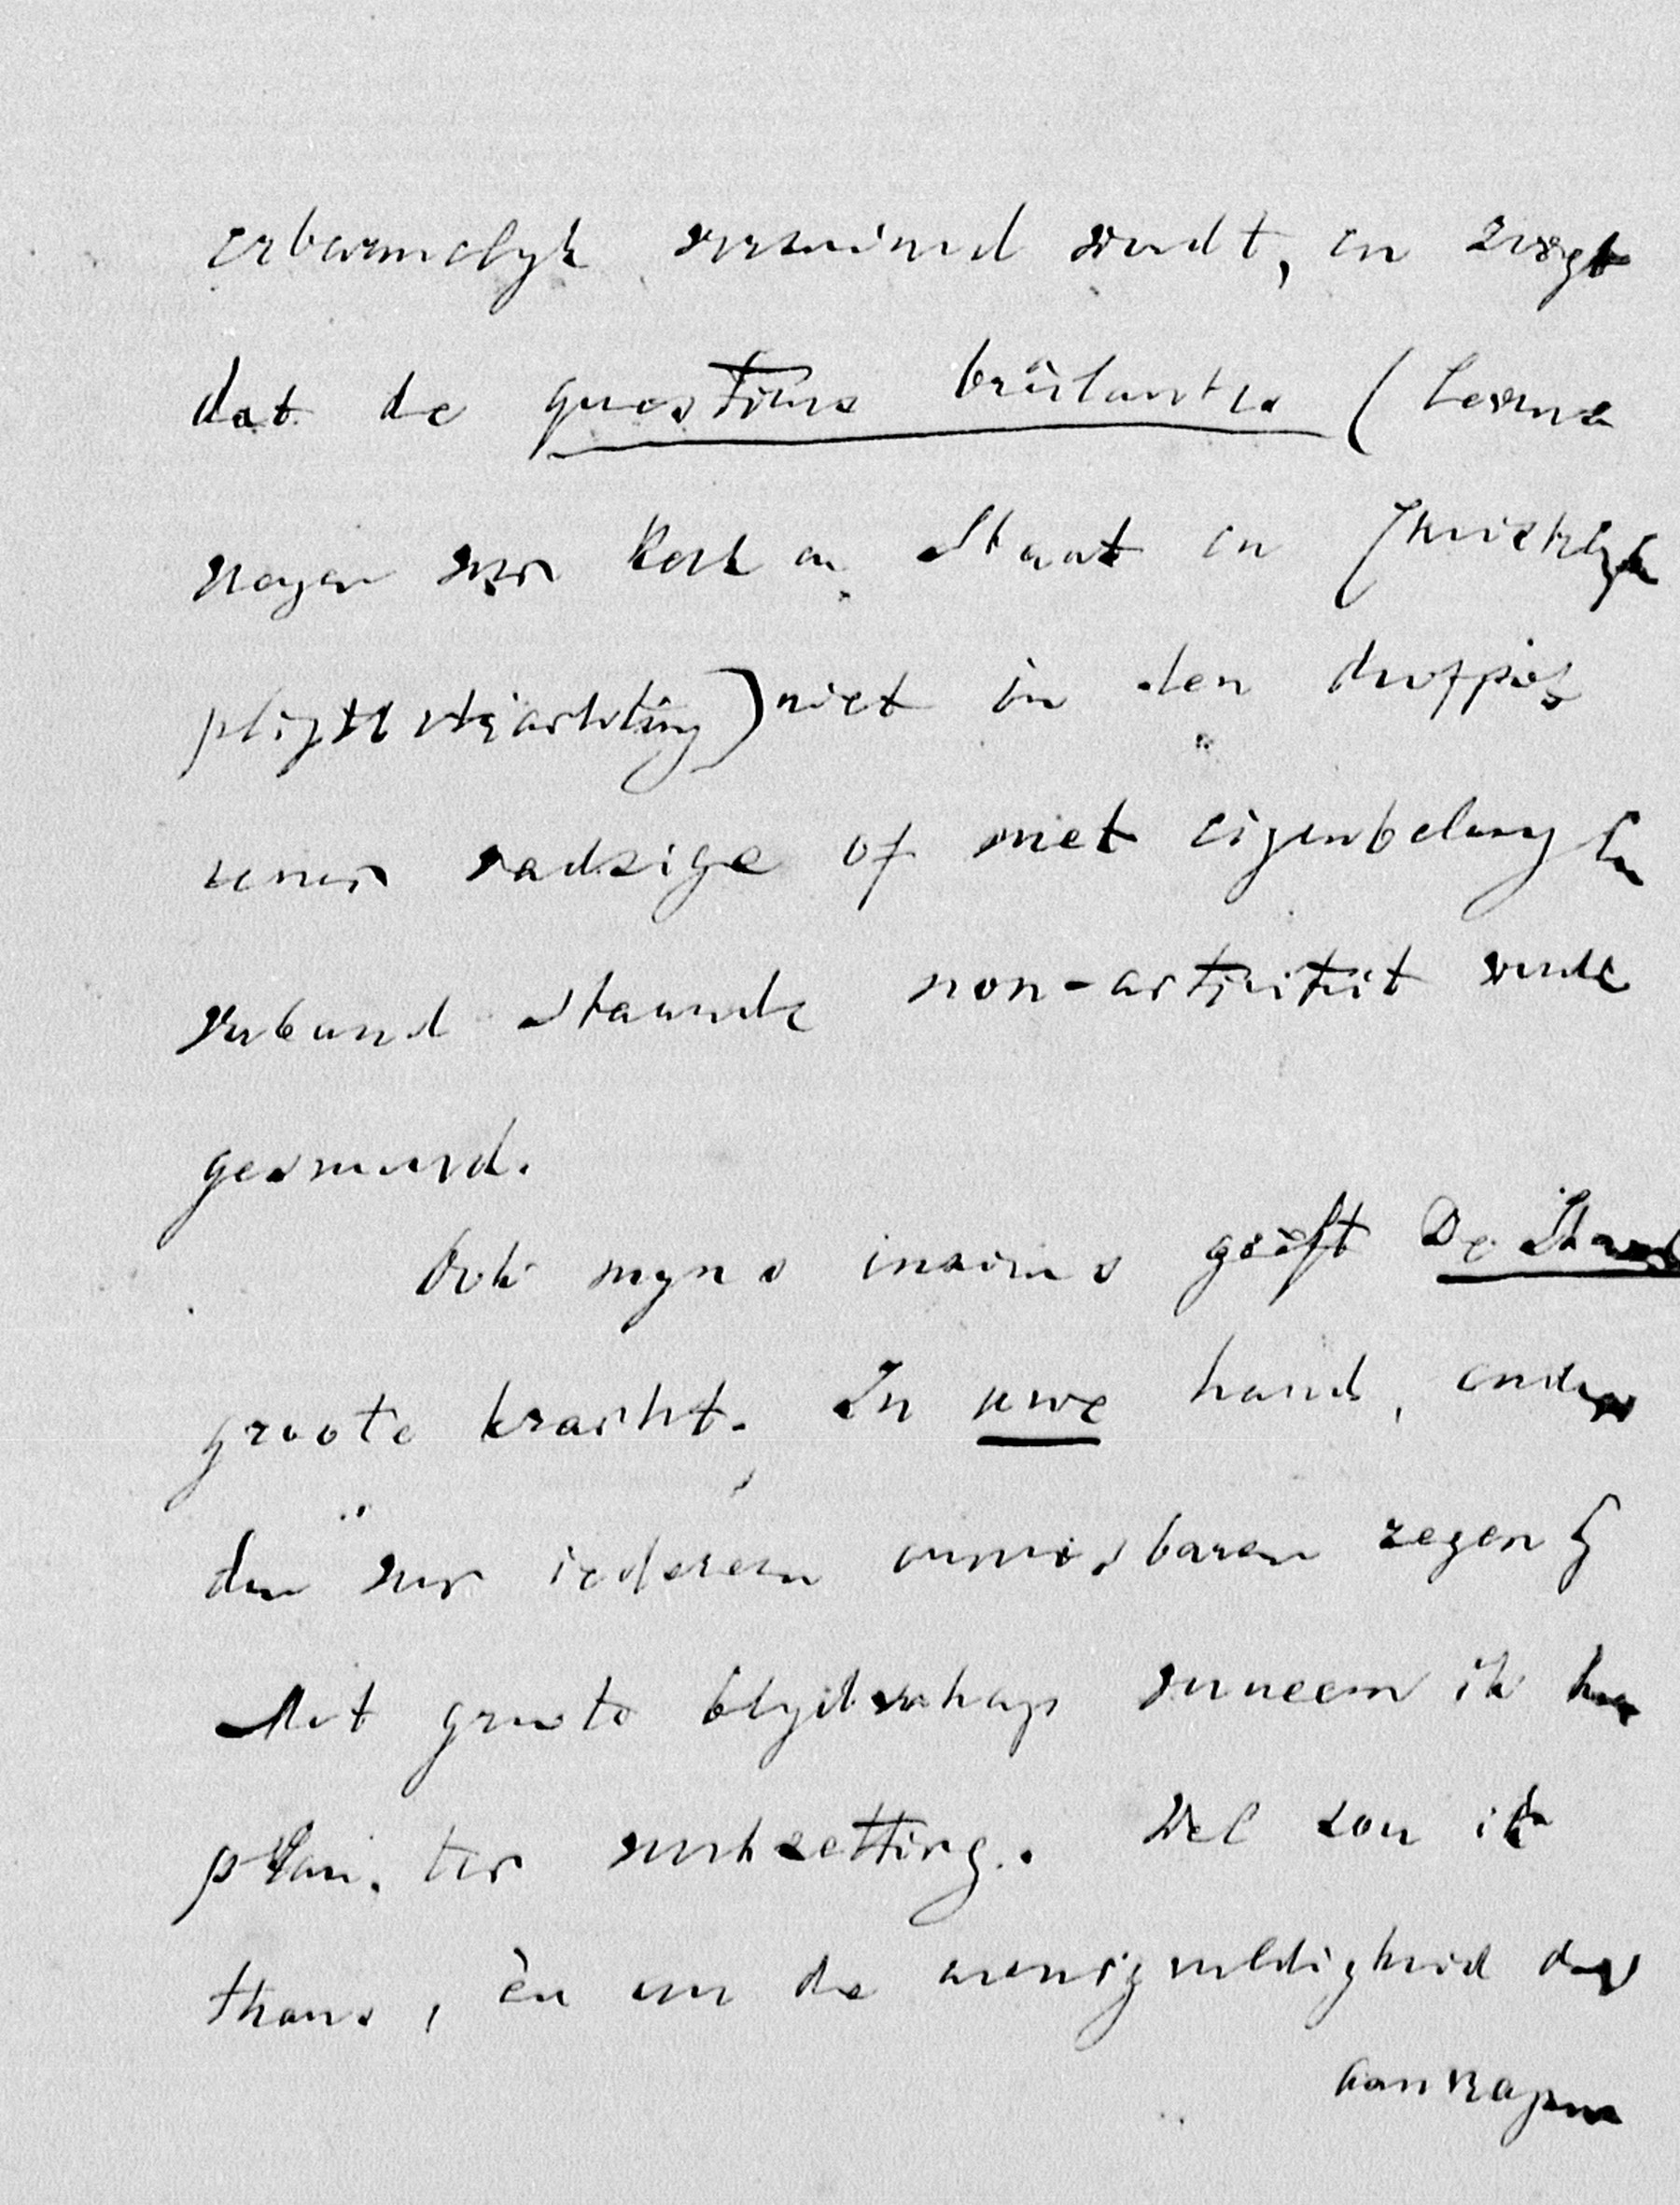 erbarmelyk verzuimd wordt, en zorgt
dat de questions brûlantes (levens
vragen voor Kerk en Staat en Christelyke
pligtsbetrachting) niet in den doofpot
eener vadzige of met eigenbelang in
verband staande non-activiteit worde
gesmoord.
Ook myns inziens geeft De Standaard
groote kracht. In uwe hand, onder
den voor iederen onmisbaren zegen!
Met groote blydschap verneem ik het
plan ter voortzetting. Wel zou ik
thans, èn om de menigvuldigheid der
aanvragen